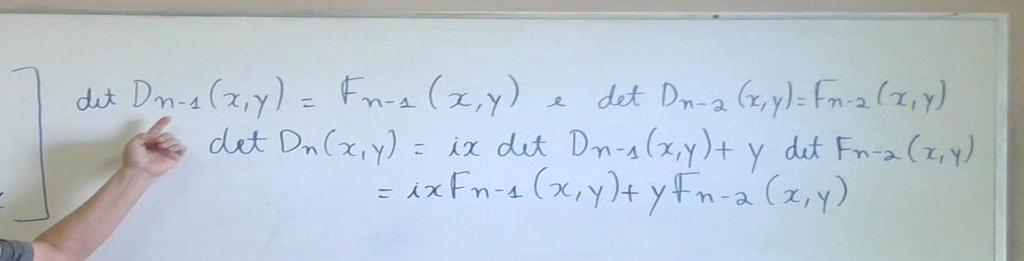 det Dn-1(x,y) = Fn-1(x,y) e det Dn-2(x,y)=Fn-2(x,y)
det Dn(x,y) = ix det Dn-1(x,y)+ y det Fn-2(x,y)
= ixFn-1(x,y)+ yFn-2(x,y)